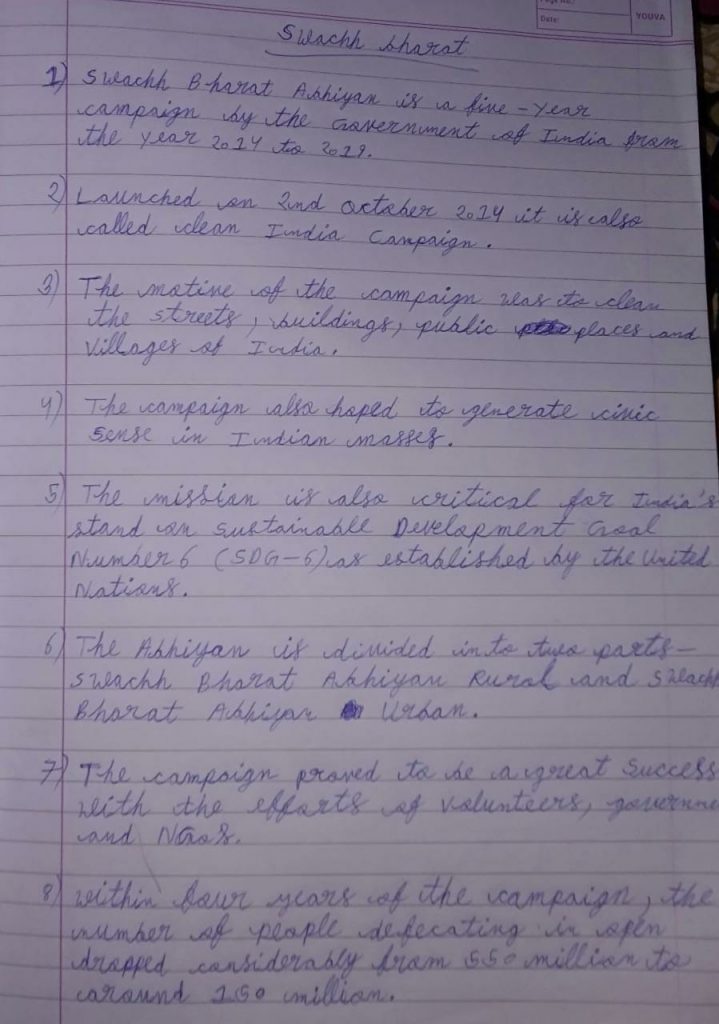 Page No.:
Date:
YOUVA
Swachh bharat
1) Swachh Bharat Abhiyan is a five-year
campaign by the Government of India from
the year 2014 to 2019.
2) Launched on 2nd october 2014 it is also
called clean India Campaign.
3) The motive of the campaign was to clean
the streets, buildings, public places and
Villages of India.
4) The campaign also hoped to generate civic
sense in Indian masses.
5) The mission is also critical for India's
stand on Sustainable Development Goal
Number 6 (SDG-6) as established by the United
Nations.
6) The Abhiyan is divided into two parts-
Swachh Bharat Abhiyan Rural and Swachh
Bharat Abhiyan Urban.
7) The campaign proved to be a great Success
with the efforts of volunteers, governme
and NGOs.
8) within four years of the campaign, the
number of people defecating in open
dropped considerably from 550 million to
around 150 million.